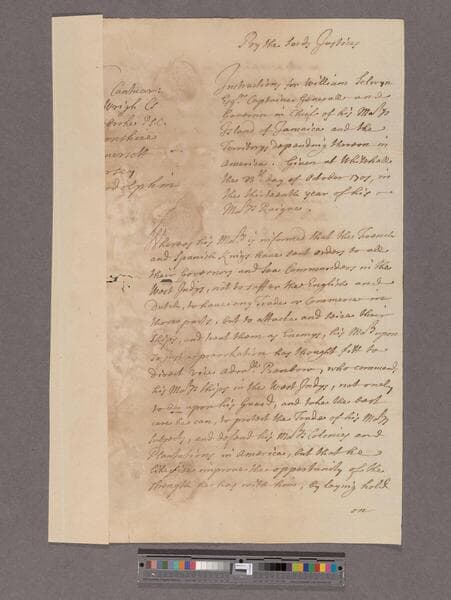 By the Lords Justices
Cantuar:
Wright CS
broke PSC.
merset
rsey
dolphin
Instructions for William Selwyn
Esqr. Captaine Generall and
Governor in Chief of his Mats
Island of Jamaica and the
Territorys depending thereon in
America. Given at Whitehall
the day of October 1701, in
the thirteenth year of his
Mats Raigne.
Whereas his Maty is informed that the French
and Spanish Kings have sent orders to all
their Governors and Sea Commanders in the
West Indys, not to suffer the English and
Dutch, to have any Trade or Commerce in
those parts, but to attacke and seize their
Ships, and treat them as Enemys, his Maty upon
approbation has thought fitt to
direct Vice Admll Benbow, who commands
his Mats Ships in the West Indys, not only
to be upon his Guard, and take the best
care he can, to protect the Trade of his Mats
Subjects, and defend his Mats Colonies and
Plantations in America, but that he
likewise improve the opportunity of the
strength he has with him, by laying hold
on